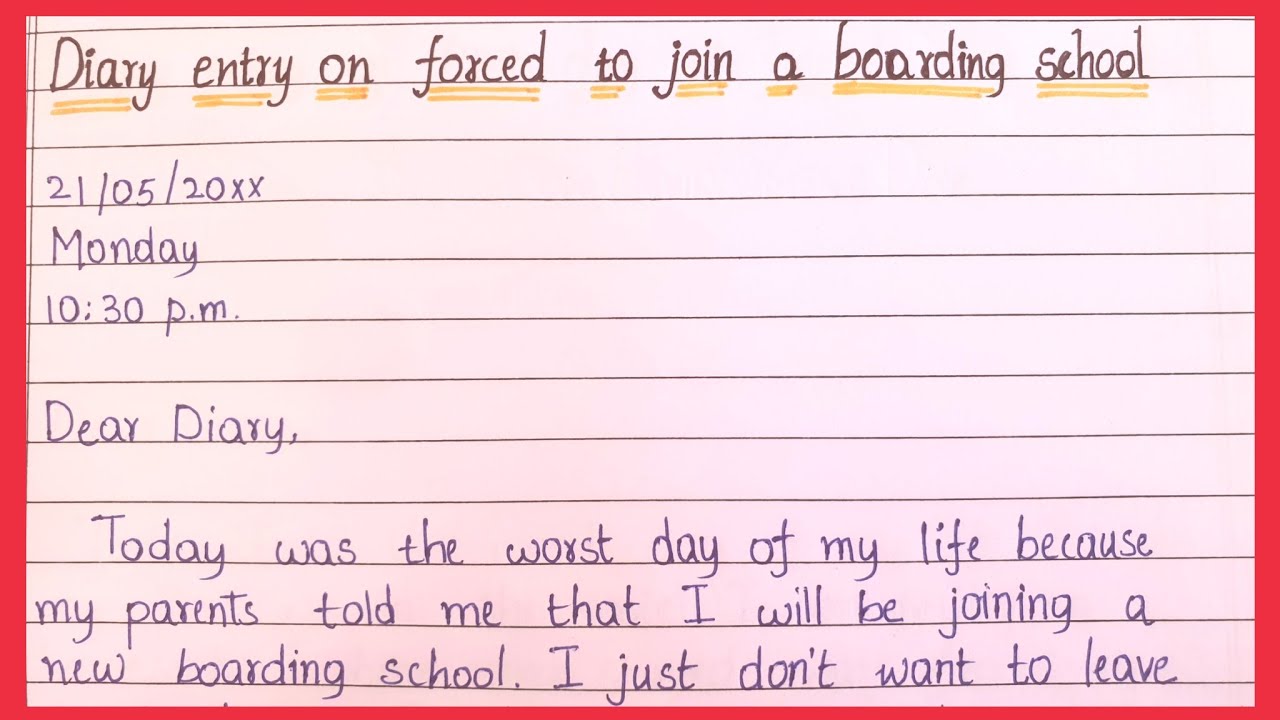 Diary entry on forced to join a boarding school
21/05/20xx
Monday
10:30 p.m.
Dear Diary,
Today was the worst day of my life because
my parents told me that I will be joining a
new boarding school. I just don't want to leave